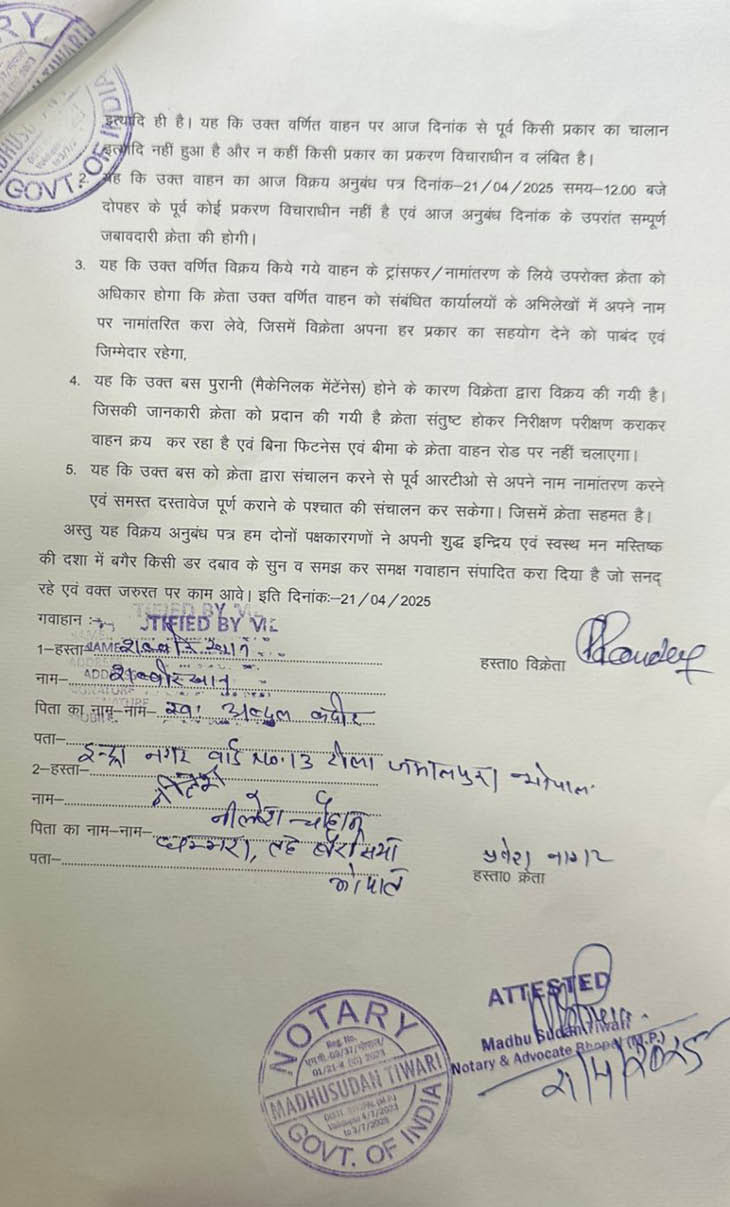 इत्यादि ही है। यह कि उक्त वर्णित वाहन पर आज दिनांक से पूर्व किसी प्रकार का चालान
इत्यादि नहीं हुआ है और न कहीं किसी प्रकार का प्रकरण विचाराधीन व लंबित है।
2. यह कि उक्त वाहन का आज विक्रय अनुबंध पत्र दिनांक–21/04/2025 समय–12.00 बजे
दोपहर के पूर्व कोई प्रकरण विचाराधीन नहीं है एवं आज अनुबंध दिनांक के उपरांत सम्पूर्ण
जबावदारी क्रेता की होगी।
3. यह कि उक्त वर्णित विक्रय किये गये वाहन के ट्रांसफर/नामांतरण के लिये उपरोक्त क्रेता को
अधिकार होगा कि क्रेता उक्त वर्णित वाहन को संबंधित कार्यालयों के अभिलेखों में अपने नाम
पर नामांतरित करा लेवे, जिसमें विक्रेता अपना हर प्रकार का सहयोग देने को पाबंद एवं
जिम्मेदार रहेगा,
4. यह कि उक्त बस पुरानी (मैकेनिलक मेंटेंनेस) होने के कारण विक्रेता द्वारा विक्रय की गयी है।
जिसकी जानकारी क्रेता को प्रदान की गयी है क्रेता संतुष्ट होकर निरीक्षण परीक्षण कराकर
वाहन क्रय कर रहा है एवं बिना फिटनेस एवं बीमा के क्रेता वाहन रोड पर नहीं चलाएगा।
5. यह कि उक्त बस को क्रेता द्वारा संचालन करने से पूर्व आरटीओ से अपने नाम नामांतरण करने
एवं समस्त दस्तावेज पूर्ण कराने के पश्चात की संचालन कर सकेगा। जिसमें क्रेता सहमत है।
अस्तु यह विक्रय अनुबंध पत्र हम दोनों पक्षकारगणों ने अपनी शुद्ध इन्द्रिय एवं स्वस्थ मन मस्तिष्क
की दशा में बगैर किसी डर दबाव के सुन व समझ कर समक्ष गवाहान संपादित करा दिया है जो सनद्
रहे एवं वक्त जरुरत पर काम आवे। इति दिनांकः–21/04/2025
गवाहान :–
TIFIED BY ME
1–हस्ता
हस्ता0 विक्रेता
नाम– शब्बीर खान
पिता का नाम–नाम– स्व: अब्दुल कदीर
पता– इन्द्रा नगर वार्ड No. 13 टीला जमालपुरा भोपाल
2–हस्ता– नीलेश
नाम– नीलेश चौहान
पिता का नाम–नाम–
पता– भोपाल
हस्ता0 क्रेता
ATTESTED
Madhu Sudan Tiwari
Notary & Advocate Bhopal (M.P.)
21/4/2025
NOTARY
Reg. No.
MADHUSUDAN TIWARI
GOVT. OF INDIA
GOVT. OF INDIA